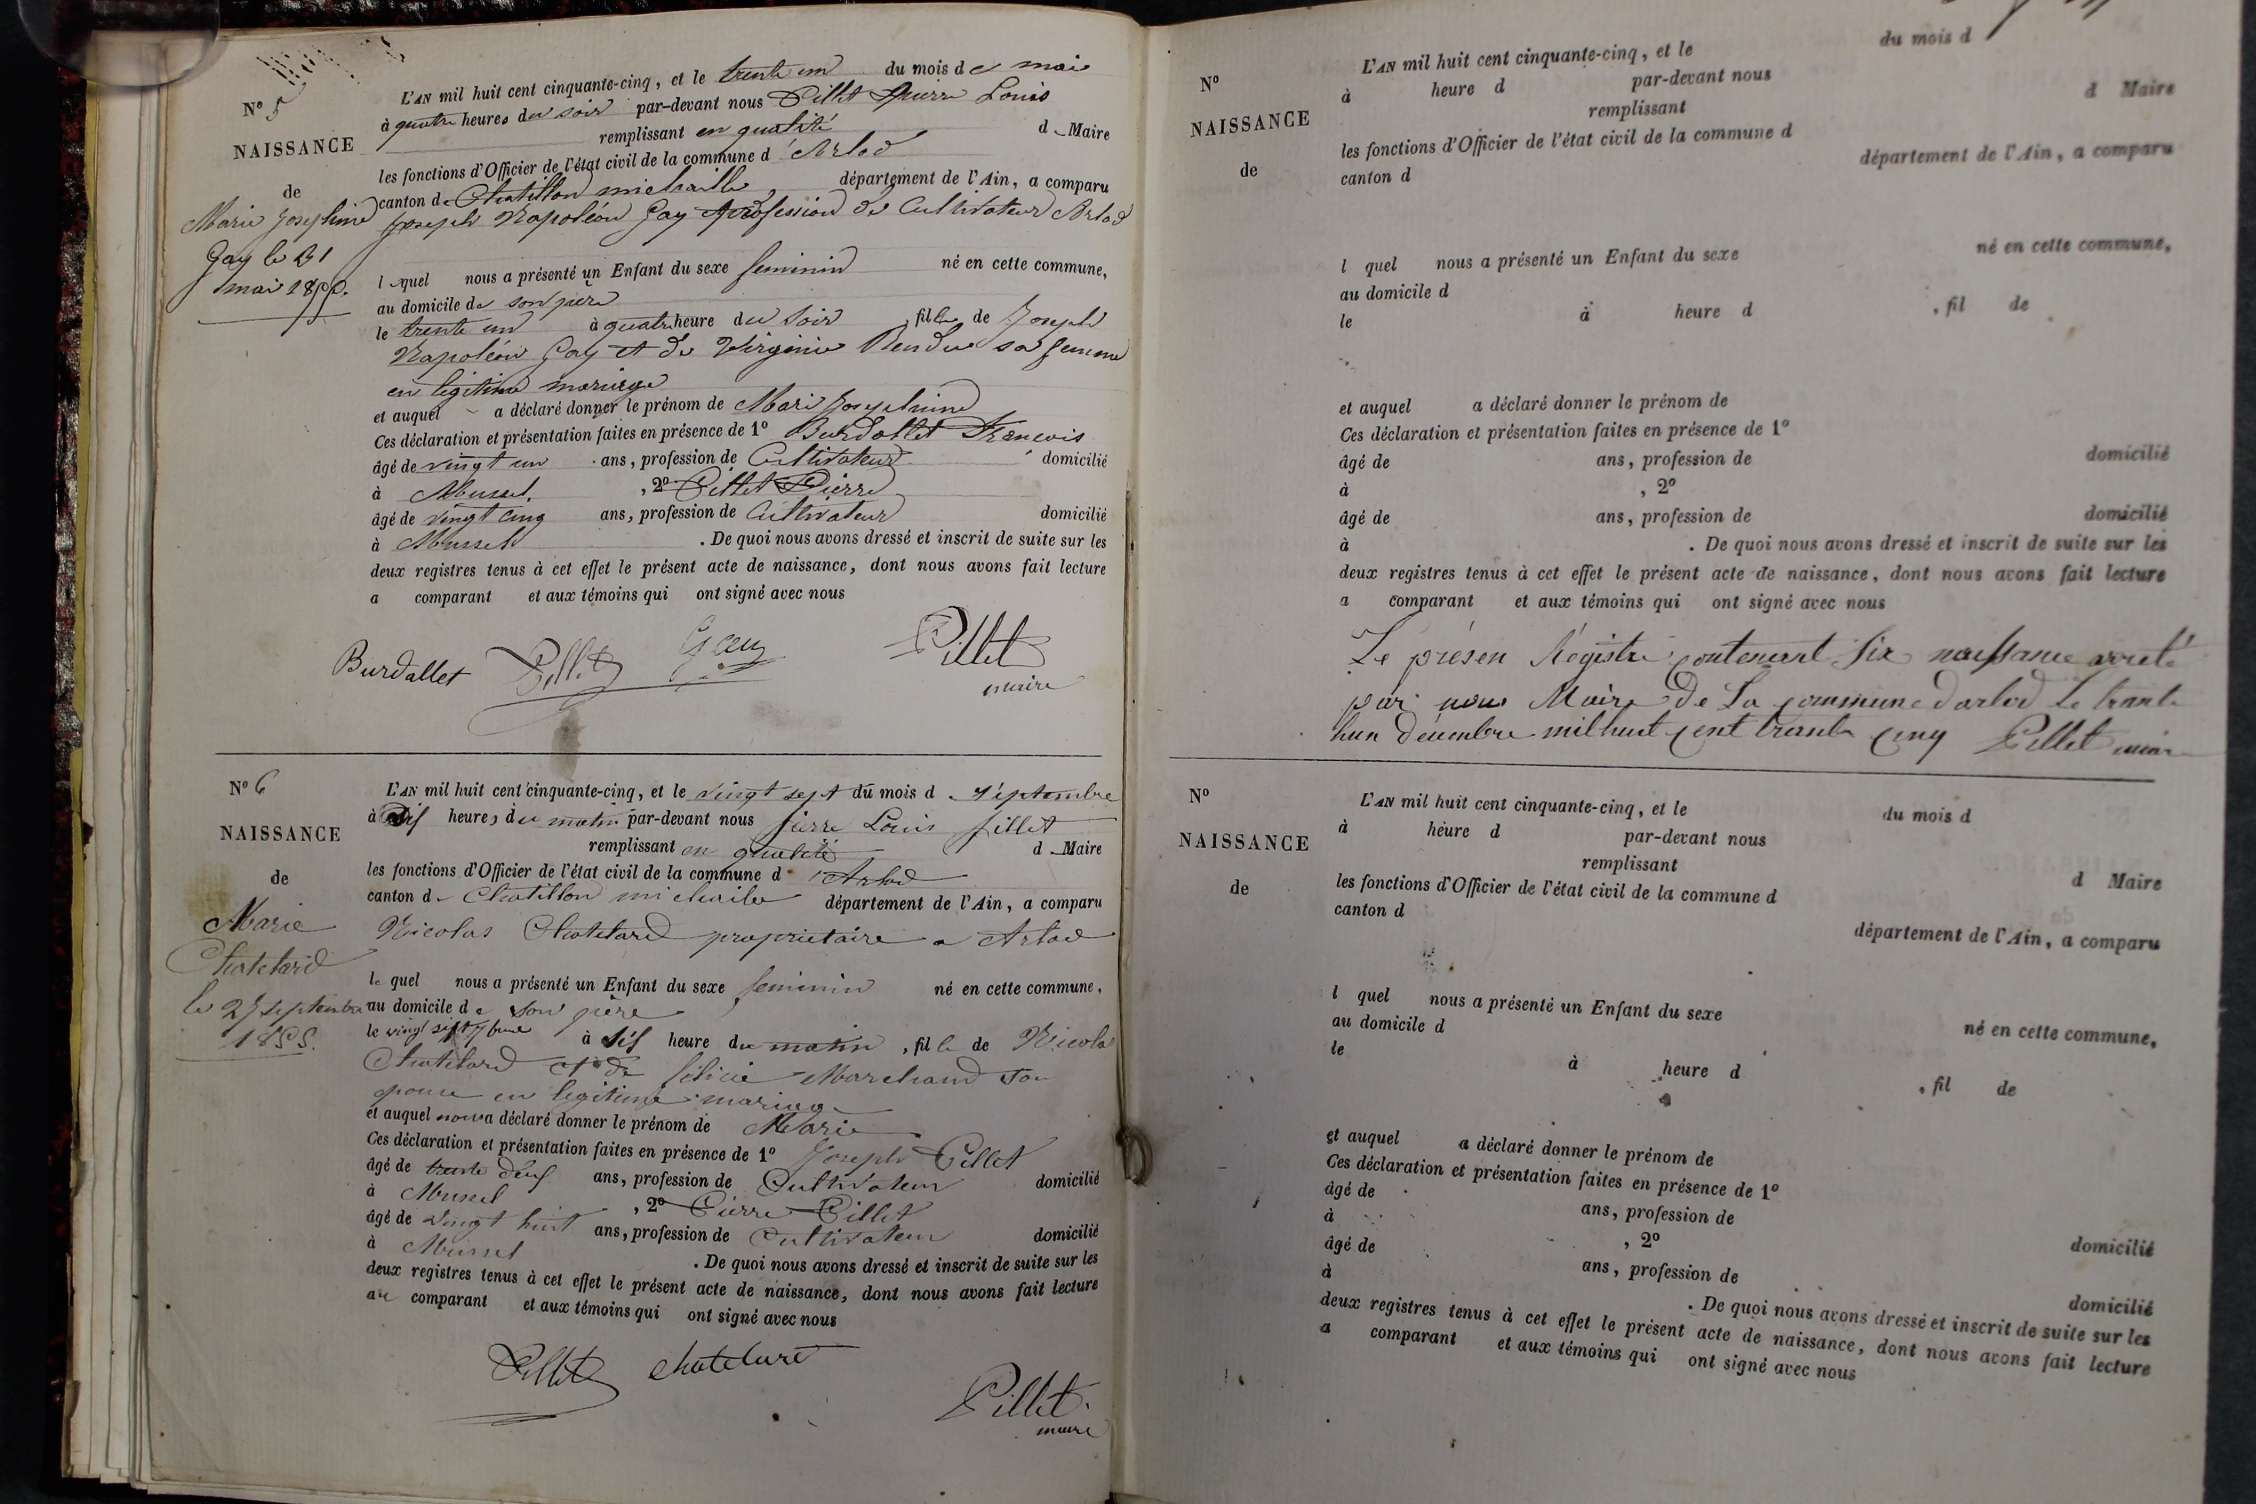 N° 5
NAISSANCE
de
Marie Josephine
Gay le 31
mai 1855.
L'AN mil huit cent cinquante-cinq, et le trente un du mois de mai
à quatre heures du soir par-devant nous Pillet Pierre Louis
remplissant en qualité d Maire
les fonctions d'Officier de l'état civil de la commune d'Arlod
canton de Chatillon michaille, département de l'Ain, a comparu
Joseph Napoléon Gay profession de Cultivateur Arlod
lequel nous a présenté un Enfant du sexe feminin né en cette commune,
au domicile de son père
le trente un à quatre heure du soir, fille de Joseph
Napoléon Gay et de Virginie Rendu sa femme
en légitime mariage
et auquel a déclaré donner le prénom de Marie Josephine
Ces déclaration et présentation faites en présence de 1° Burdallet Francois
âgé de vingt un ans, profession de Cultivateur domicilié
à Mussel, 2° Pillet Pierre
âgé de vingt cinq ans, profession de Cultivateur domicilié
à Mussel . De quoi nous avons dressé et inscrit de suite sur les
deux registres tenus à cet effet le présent acte de naissance, dont nous avons fait lecture
a comparant et aux témoins qui ont signé avec nous
Burdallet Pillet Gay Pillet
maire
N° 6
NAISSANCE
de
Marie
Chatelard
le 27 septembre
1855.
L'AN mil huit cent cinquante-cinq, et le vingt sept du mois d septembre
à dis heures du matin par-devant nous pierre Louis pillet
remplissant en qualité d Maire
les fonctions d'Officier de l'état civil de la commune d'Arlod
canton de Chatillon michaile département de l'Ain, a comparu
Nicolas Chatelard proprietaire a Arlod
lequel nous a présenté un Enfant du sexe feminin né en cette commune,
au domicile de son père
le vingt sept 7bre à dis heure du matin, fille de Nicolas
Chatelard et de félicie Marchand son
epouse en legitime mariage
et auquel nous a déclaré donner le prénom de Marie
Ces déclaration et présentation faites en présence de 1° Joseph Pillet
âgé de trente deux ans, profession de Cultivateur domicilié
à Mussel, 2° Pierre Pillet
âgé de vingt huit ans, profession de Cultivateur domicilié
à Mussel . De quoi nous avons dressé et inscrit de suite sur les
deux registres tenus à cet effet le présent acte de naissance, dont nous avons fait lecture
au comparant et aux témoins qui ont signé avec nous
Pillet chatelard
Pillet
maire
N°
NAISSANCE
de
L'AN mil huit cent cinquante-cinq, et le du mois d
à heure d par-devant nous
remplissant d Maire
les fonctions d'Officier de l'état civil de la commune d
canton d département de l'Ain, a comparu
l quel nous a présenté un Enfant du sexe né en cette commune,
au domicile d
le à heure d , fil de
et auquel a déclaré donner le prénom de
Ces déclaration et présentation faites en présence de 1°
âgé de ans, profession de domicilié
à , 2°
âgé de ans, profession de domicilié
à . De quoi nous avons dressé et inscrit de suite sur les
deux registres tenus à cet effet le présent acte de naissance, dont nous avons fait lecture
a comparant et aux témoins qui ont signé avec nous
Le présen Régistre contenant Six naissance arreté
par nous Maire De La commune d'arlod Le trante
hun décembre mil huit cent trante cinq Pillet maire
N°
NAISSANCE
de
L'AN mil huit cent cinquante-cinq, et le du mois d
à heure d par-devant nous
remplissant d Maire
les fonctions d'Officier de l'état civil de la commune d
canton d département de l'Ain, a comparu
l quel nous a présenté un Enfant du sexe né en cette commune,
au domicile d
le à heure d , fil de
et auquel a déclaré donner le prénom de
Ces déclaration et présentation faites en présence de 1°
âgé de ans, profession de
à , 2° domicilié
âgé de ans, profession de
à domicilié
. De quoi nous avons dressé et inscrit de suite sur les
deux registres tenus à cet effet le présent acte de naissance, dont nous avons fait lecture
a comparant et aux témoins qui ont signé avec nous